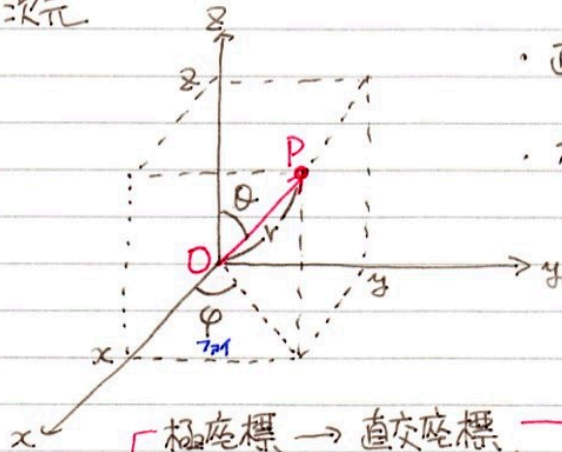 次元
z
z
P
θ
r
O
y
y
φ
ファイ
x
x
極座標 → 直交座標